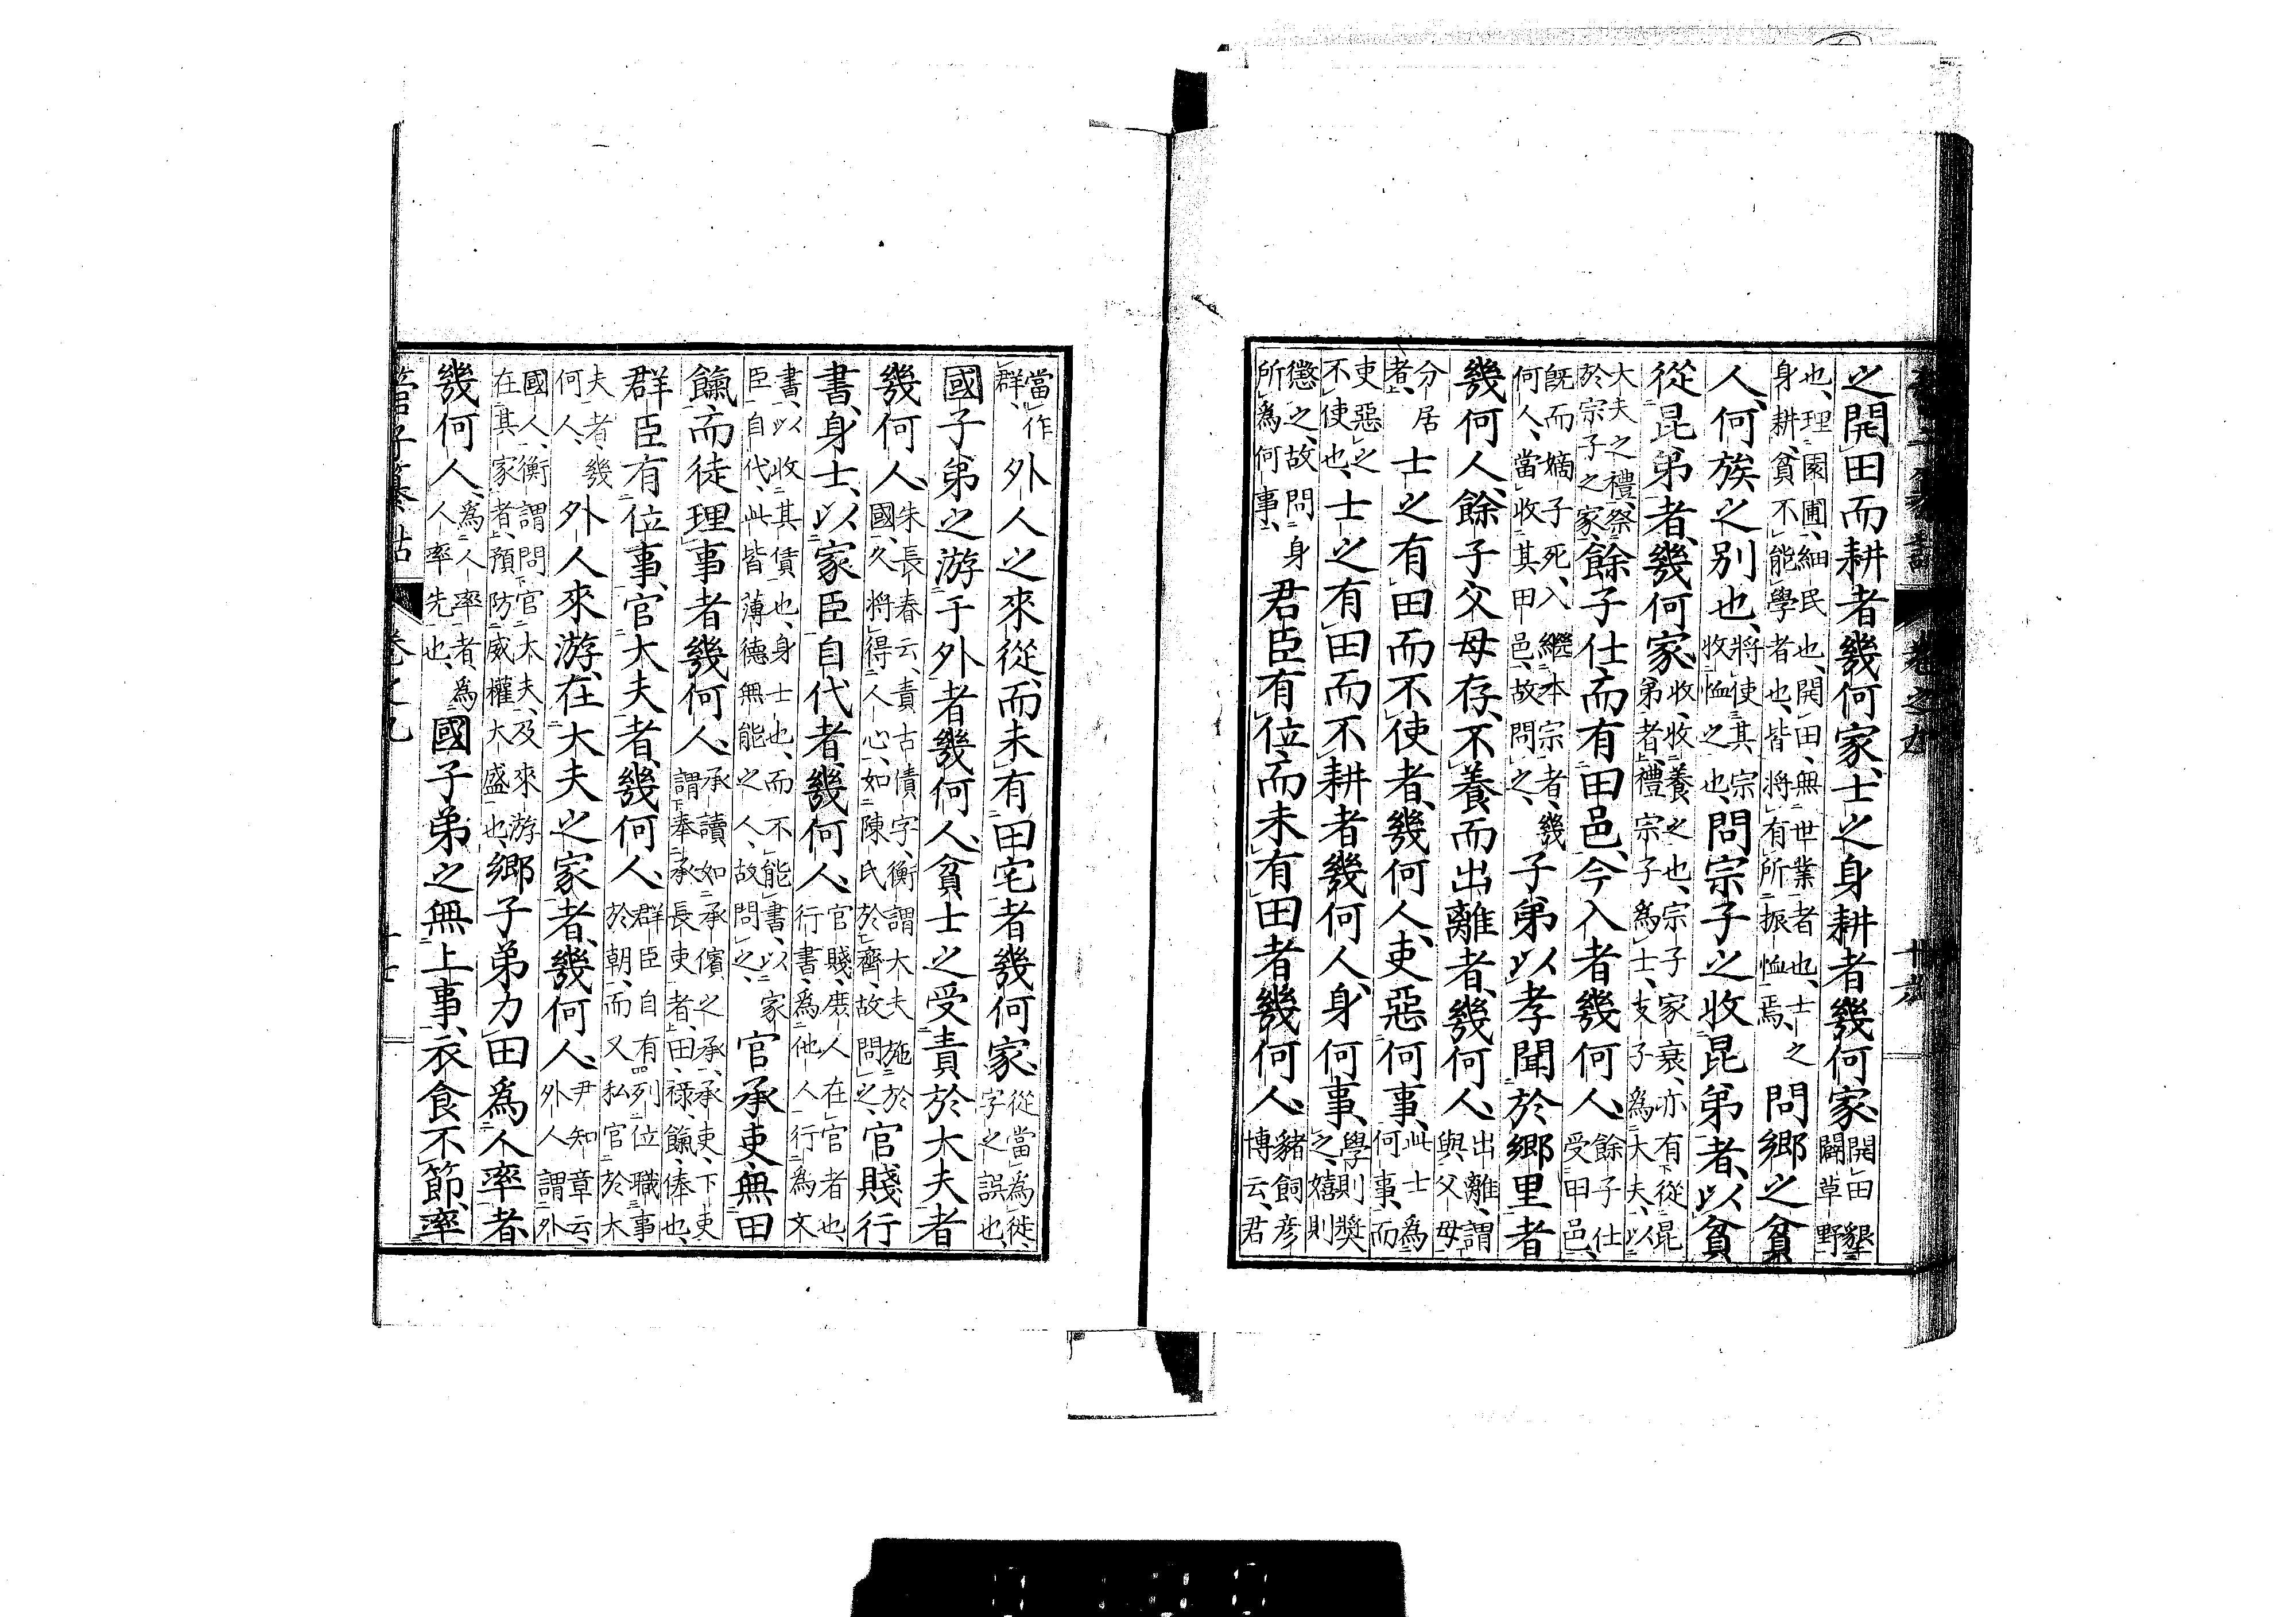 之開田而耕者幾何家、士之身耕者幾何家、開田墾闢草野
也、理園圃、細民也、開田、無世業者也、士之身耕、貧不能學者也、皆將有所振恤焉、問鄉之貧
人、何族之別也、將使其宗收恤之也、問宗子之收昆弟者、以貧
從昆弟者、幾何家、收、收養之也、宗子家衰、亦有從昆弟者、禮宗子爲士、支子爲大夫、以
大夫之禮、祭於宗子之家、餘子仕、而有田邑、今入者幾何人、餘子仕受田邑、
旣而嫡子死、入繼本宗者、幾何人、當收其田邑、故問之、子弟以孝聞於鄉里者
幾何人、餘子父母存、不養而出離者、幾何人、出離、謂與父母
分居者、士之有田而不使者、幾何人、吏惡何事、此士爲何事、而
吏惡之不使也、士之有田而不耕者幾何人、身何事、學則奬之、嬉則
懲之、故問身所爲何事、君臣有位、而未有田者幾何人、豬飼彥博云、君
當作群、外人之來從、而未有田宅者幾何家、從當爲徙、字之誤也、
國子弟之游于外者幾何人、貧士之受責於大夫者
幾何人、朱長春云、責古債字、衡謂大夫施於國、久將得人心、如陳氏於齊、故問之、官賤行
書、身士、以家臣自代者、幾何人、官賤、庶人在官者也、行書、爲他人行爲文
書、以收其債也、身士也、而不能書、以家臣自代、此皆薄德無能之人、故問之、官承吏、無田
餼、而徒理事者幾何人、承讀如承儐之承、承吏、下吏謂奉承長吏者、田、祿、餼、俸也、
群臣有位事、官大夫者、幾何人、群臣自有列位職事於朝、而又私官於大
夫者幾何人、外人來游、在大夫之家者、幾何人、尹知章云、外人謂外
國人、衡謂問官大夫、及來游在其家者、預防威權大盛也、鄉子弟力田爲人率者、
幾何人、爲人率者、爲人率先也、國子弟之無上事、衣食不節、率
管子纂詁 卷之九